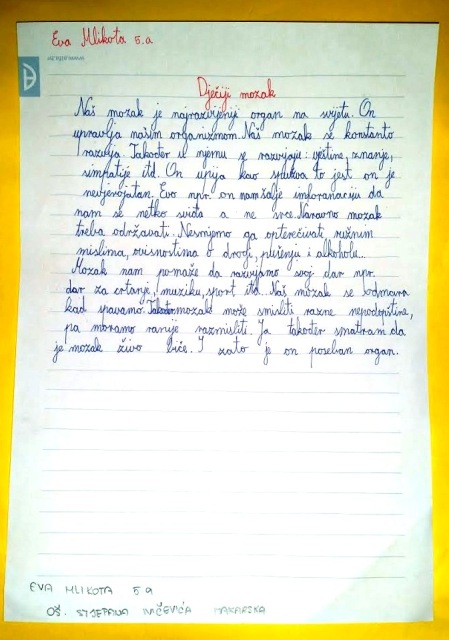 Eva Mlikota 5.a
Dječiji mozak
Naš mozak je najrazvijeniji organ na svijetu. On
upravlja našim organizmom. Naš mozak se konstanto
razvija. Također u njemu se razvijaju vještine, znanje,
simpatije itd. On upija kao spužva to jest on je
nevjerojatan. Evo npr. on nam šalje imforanaciju da
nam se netko sviđa a ne srce. Naravno mozak
treba održavati. Nesmijemo ga opterećivati ružnim
mislima, ovisnostima o drogi, pušenju i alkoholu...
Mozak nam pomaže da razvijamo svoj dar npr.
dar za crtanje, muziku, sport itd. Naš mozak se odmara
kad spavamo. Također mozak može smisliti razne nepodopštine,
pa moramo ranije razmisliti. Ja također smatram da
je mozak živo biće. I zato je on poseban organ.
EVA MLIKOTA 5a
OŠ. STJEPANA IVIČEVIĆA MAKARSKA